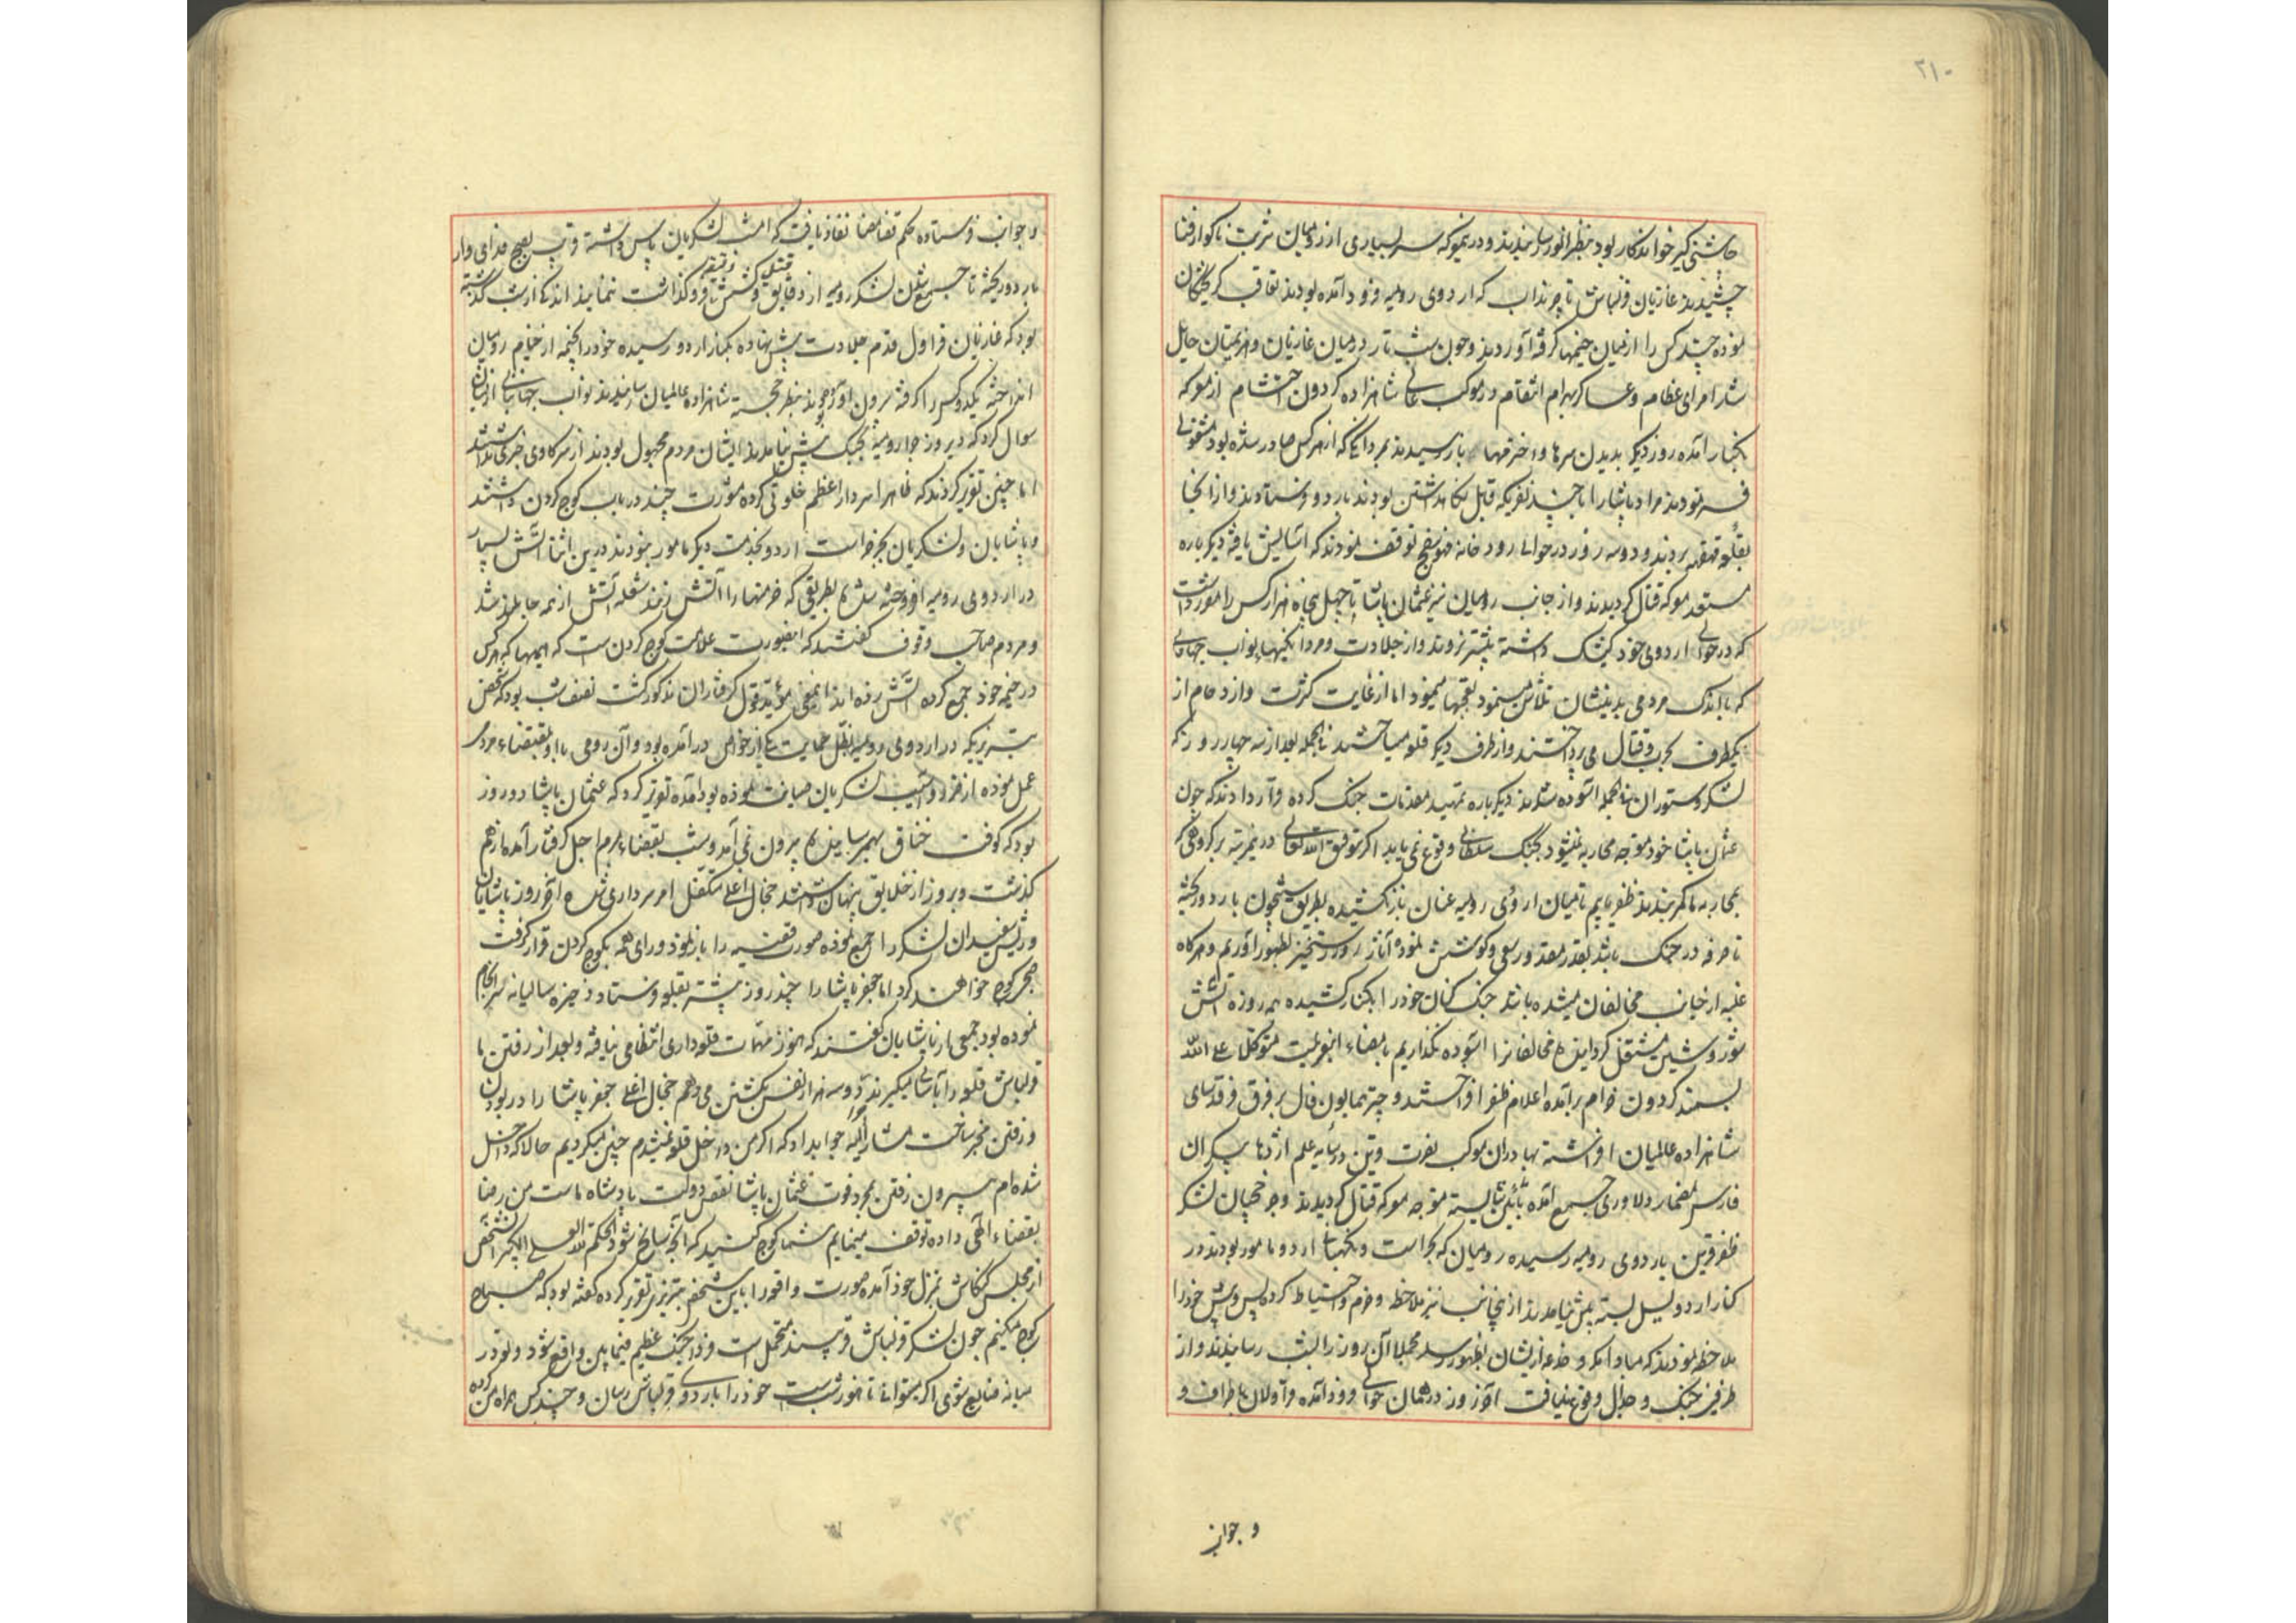 ۲۱۰
چاشنی گیر خواندکار بود بنظر انور رسانیدند و درین معرکه سر بسیاری از رومیان شربت ناگوار فنا
چشیدند غازیان قزلباش تا چرنداب که اردوی رومیه فرود آمده بودند تعاقب گریختگان
نموده چند کس را از میان خیمها گرفته آوردند و چون شب تار در میان غازیان و هزیمتیان حایل
شد امرای عظام و عساکر بهرام انتقام در موکب عالی شاهزاده گردون احتشام از معرکه
بکنار آمده روز دیگر بدیدن سرها و اخترمها بازرسیدند مردانگی که از هر کس صادر شده بود مشغولی
فرمودند مراد پاشا را با چند نفر که قابل نگاهداشتن بودند باردو فرستادند و از آنجا
بقلعه قهقهه بردند و دو سه روز در حوالی رودخانه فهوسفج توقف نمودند که آسایش یافته دیگر باره
مستعد معرکه قتال گردیدند و از جانب رومیان نیز عثمان پاشا چهل پنجاه هزار کس را مقرر داشت
که در حوالی اردوی خود کیشک داشته پیشتر نروند و از جلادت و مردانگیهاء نواب جهانبانی
که با اندک مردمی بدینشان تلاش مینمود تعجبها مینمود اما از غایت کثرت و ازدحام از
یکطرف بحرب و قتال می پرداختند و از طرف دیگر قلعه میساختند فی الجمله بعد از سه چهار روز که
لشکر و ستوران فی الجمله آسوده شدند دیگر باره تمهید مقدمات جنگ کرده قرار دادند که چون
عثمان پاشا خود متوجه محاربه نمیشود و جنگ سلطانی وقوع نمی یابد اگر بتوفیق الله تعالی درین مرتبه بر گروهی که
بمحاربه ما کمر بندند ظفر یابیم تا میان اردوی رومیه عنان باز نکشیده بطریق شبیخون باردو ریخته
تا صرفه در جنگ باشد بقدر مقدور سعی و کوشش نموده آثار روز رستخیز بظهور آوریم و هرگاه
غلبه از جانب مخالفان مشاهده باشد جنگ کنان خود را بکنار کشیده همه روزه آتش
شور و شین مشتعل گردانیده مخالفانرا آسوده نگذاریم بامضاء این عزیمت متوکلا علی الله
بسمند گردون خرام برآمده اعلام ظفر افراختند و چتر همایون فال بر فرق فرقدسای
شاهزاده عالمیان افراشته بهادران موکب نصرت قرین در سایه علم اژدها پیکر آن
فارس مضمار دلاوری جمع آمده بآئین شایسته متوجه معرکه قتال گردیدند و چرخچیان لشکر
ظفر قرین باردوی رومیه رسیده رومیان که بحراست و نگهبانی اردو مامور بودند در
کنار اردو یسل بسته پیش نیامدند از اینجانب نیز ملاحظه و حزم و احتیاط کرده پس و پیش خود را
ملاحظه نمودند که مبادا مکر و خدعه ازیشان بظهور رسد مجملا آن روز را بشب رسانیدند و از
طرفین جنگ و جدال وقوع نیافت آخر روز در همان حوالی فرود آمده قراولان باطراف و
و جوانب
و جوانب فرستاده حکم قضا مضا نفاذ یافت که امشب لشکریان پاس داشته قریب بصبح
باردو ریخته تا جمعیت لشکر رومیه از دقایق کوشش دقیقه فروگذاشت ننمایند اندکی از شب گذشته
بود که غازیان قراول قدم جلادت پیش نهاده بکنار اردو رسیده خود را بخیمه از خیام رومیان
انداخته یکدو کس را گرفته بیرون آوردند بنظر خجسته شاهزاده عالمیان رسانیدند نواب جهانبانی ازیشان
سوال کرد که دیروز چرا رومیه بجنگ پیش نیامدند ایشان مردم مجهول بودند از سرکاری خبری نداشتند
اما چنین تقریر کردند که ظاهرا سردار اعظم خلوتی کرده مشورت چند در باب کوچ کردن داشتند
و پاشایان و لشکریان بجز حراست اردو بخدمت دیگر مامور نبودند درین اثنا آتش بسیار
در اردوی رومیه افروخته شد بطریقی که خرمنها را آتش زنند شعله آتش از همه جا بلند شد
و مردم صاحب وقوف گفتند که اینصورت علامت کوچ کردنست که هیمها که هر کس
در خیمه خود جمع کرده آتش زده اند اینمعنی مؤید قول گرفتاران مذکور گشت نصف شب بود که شخص
تبریزی که در اردوی رومیه بظل حمایت یکی از خواص درآمده بود و آن رومی با او بمقتضاء مردمی
عمل نموده از ضرر و آسیب لشکریان صیانت نموده بود آمده تقریر کرد که عثمان پاشا دو روز
بود که کوفت خناق بهمرسانیده بیرون نمی آمد و شب بقضاء مبرم اجل گرفتار آمده از هم
گذشت و بروز از خلایق پنهان داشتند جغال اغلی متکفل امر سرداری شده آخر روز پاشایان
و ریش سفیدان لشکر را جمع نموده صورت قضیه را باز نمود و رای همه بکوچ کردن قرار گرفت
صبح کوچ خواهند کرد اما جعفر پاشا را چند روز پیشتر بقلعه فرستاد ذخیره سالیانه سرانجام
نموده بود جمعی از پاشایان گفتند که هنوز مهمات قلعه داری انتظامی نیافته و بعد از رفتن ما
قزلباش قلعه را بآسانی میگیرند و سه هزار نفس بکشتن می دهیم جغال اغلی جعفر پاشا را در بودن
و رفتن مخیر ساخت مشار الیه جواب داد که اگر من داخل قلعه نمیشدم چنین میکردیم حالا که داخل
شده ام بیرون رفتن بمجرد فوت عثمان پاشا نقص دولت پادشاه ماست من رضا
بقضاء الهی داده توقف مینمایم شما کوچ کنید که آنچه سانح شود الحکم لله العلی الکبیر آنشخص
از مجلس کنکاش بمنزل خود آمده صورت واقعه را باین شخص تبریزی تقریر کرده گفته بود که صباح
کوچ میکنیم چون لشکر قزلباش قریبند محتمل است فردا جنگ عظیم فیمابین واقع شود و تو در
میانه ضایع شوی اگر میتوانی تا هنوز شبست خود را باردوی قزلباش رسان و چند کس همراه من کرده